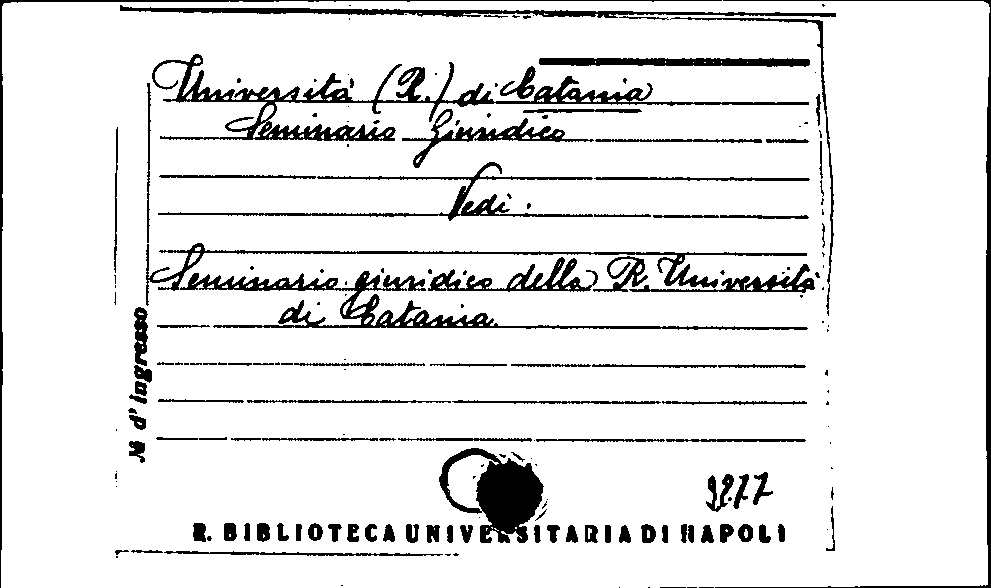 Università (R.) di Catania
Seminario Giuridico
Vedi:
Seminario giuridico della R. Università
di Catania.
N. d'ingresso
9277
R. BIBLIOTECA UNIVERSITARIA DI NAPOLI